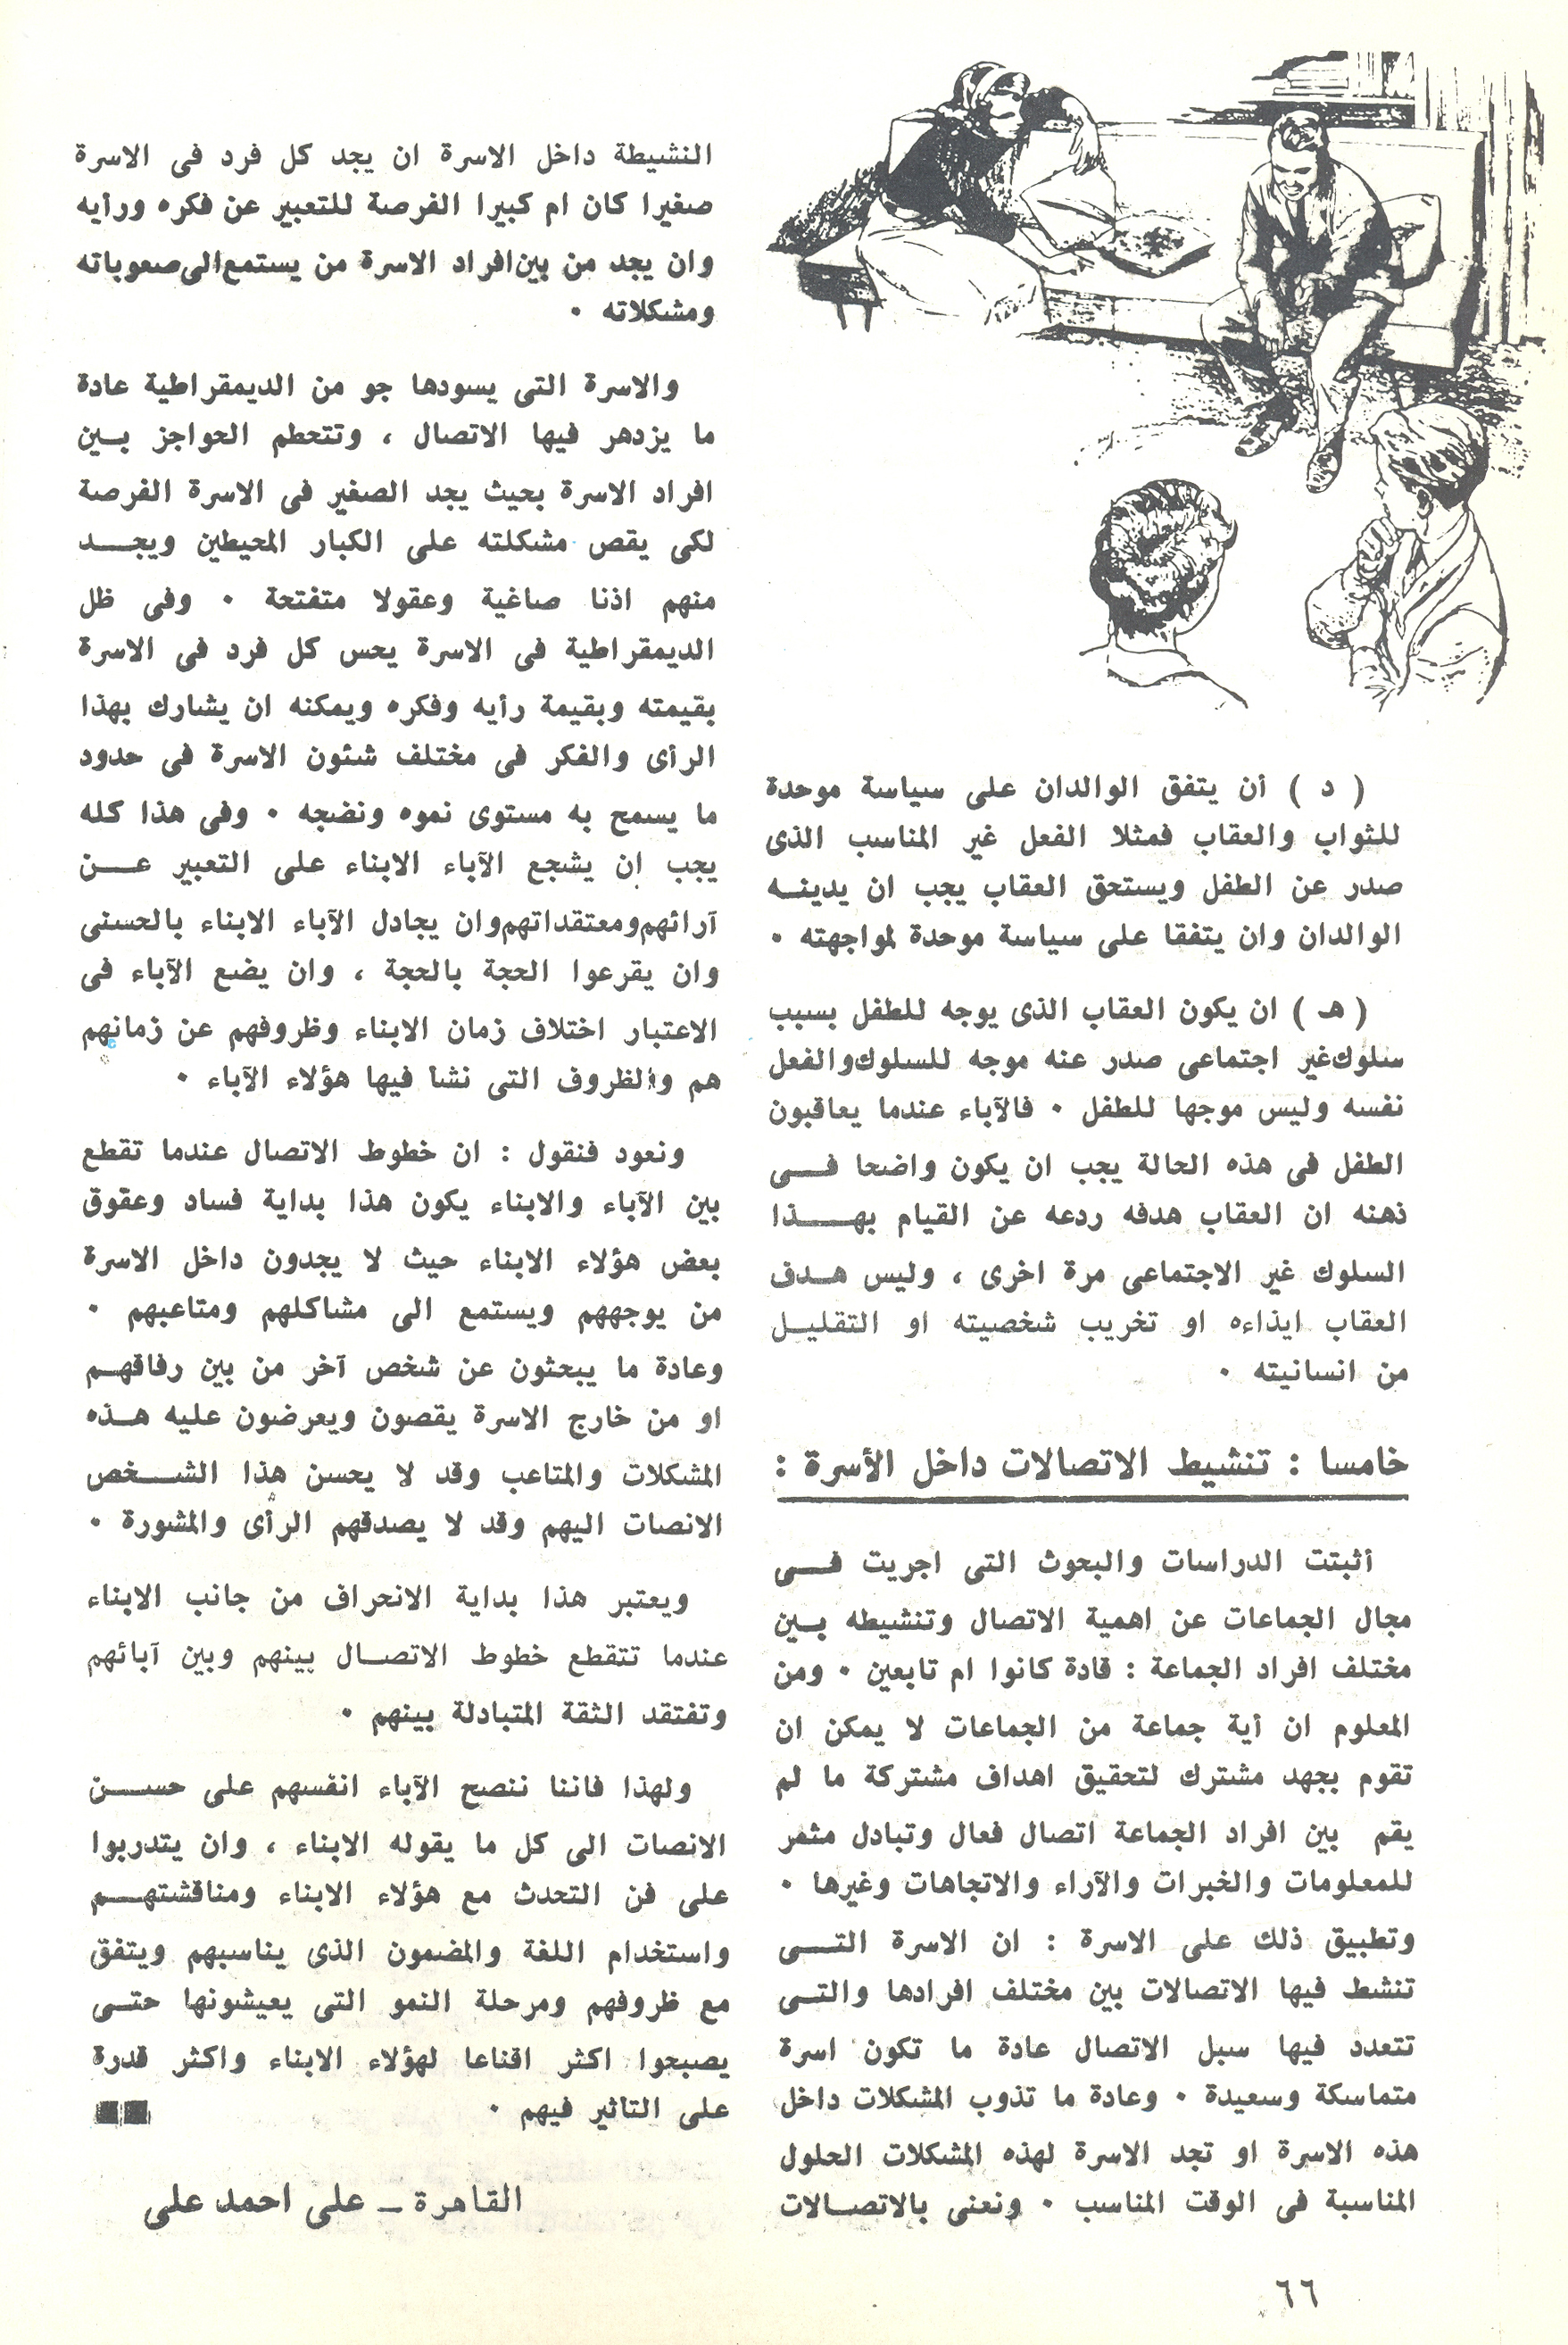 ( د ) أن يتفق الوالدان على سياسة موحدة
للثواب والعقاب فمثلا الفعل غير المناسب الذى
صدر عن الطفل ويستحق العقاب يجب ان يدينه
الوالدان وان يتفقا على سياسة موحدة لمواجهته ٠
( هـ ) ان يكون العقاب الذى يوجه للطفل بسبب
سلوك غير اجتماعى صدر عنه موجه للسلوك والفعل
نفسه وليس موجها للطفل ٠ فالآباء عندما يعاقبون
الطفل فى هذه الحالة يجب ان يكون واضحا فى
ذهنه ان العقاب هدفه ردعه عن القيام بهذا
السلوك غير الاجتماعى مرة اخرى ، وليس هدف
العقاب ايذاءه او تخريب شخصيته او التقليل
من انسانيته ٠
خامسا : تنشيط الاتصالات داخل الأسرة :
أثبتت الدراسات والبحوث التى اجريت فى
مجال الجماعات عن اهمية الاتصال وتنشيطه بين
مختلف افراد الجماعة : قادة كانوا ام تابعين ٠ ومن
المعلوم ان أية جماعة من الجماعات لا يمكن ان
تقوم بجهد مشترك لتحقيق اهداف مشتركة ما لم
يقم بين افراد الجماعة اتصال فعال وتبادل مثمر
للمعلومات والخبرات والآراء والاتجاهات وغيرها ٠
وتطبيق ذلك على الاسرة : ان الاسرة التى
تنشط فيها الاتصالات بين مختلف افرادها والتى
تتعدد فيها سبل الاتصال عادة ما تكون اسرة
متماسكة وسعيدة ٠ وعادة ما تذوب المشكلات داخل
هذه الاسرة او تجد الاسرة لهذه المشكلات الحلول
المناسبة فى الوقت المناسب ٠ ونعنى بالاتصالات
النشيطة داخل الاسرة ان يجد كل فرد فى الاسرة
صغيرا كان ام كبيرا الفرصة للتعبير عن فكره ورأيه
وان يجد من بين افراد الاسرة من يستمع الى صعوباته
ومشكلاته ٠
والاسرة التى يسودها جو من الديمقراطية عادة
ما يزدهر فيها الاتصال ، وتتحطم الحواجز بين
افراد الاسرة بحيث يجد الصغير فى الاسرة الفرصة
لكى يقص مشكلته على الكبار المحيطين ويجد
منهم اذنا صاغية وعقولا متفتحة ٠ وفى ظل
الديمقراطية فى الاسرة يحس كل فرد فى الاسرة
بقيمته وبقيمة رأيه وفكره ويمكنه ان يشارك بهذا
الرأى والفكر فى مختلف شئون الاسرة فى حدود
ما يسمح به مستوى نموه ونضجه ٠ وفى هذا كله
يجب إن يشجع الآباء الابناء على التعبير عن
آرائهم ومعتقداتهم وان يجادل الآباء الابناء بالحسنى
وان يقرعوا الحجة بالحجة ، وان يضع الآباء فى
الاعتبار اختلاف زمان الابناء وظروفهم عن زمانهم
هم والظروف التى نشأ فيها هؤلاء الآباء ٠
ونعود فنقول : ان خطوط الاتصال عندما تقطع
بين الآباء والابناء يكون هذا بداية فساد وعقوق
بعض هؤلاء الابناء حيث لا يجدون داخل الاسرة
من يوجههم ويستمع الى مشاكلهم ومتاعبهم ٠
وعادة ما يبحثون عن شخص آخر من بين رفاقهم
او من خارج الاسرة يقصون ويعرضون عليه هذه
المشكلات والمتاعب وقد لا يحسن هذا الشخص
الانصات اليهم وقد لا يصدقهم الرأى والمشورة ٠
ويعتبر هذا بداية الانحراف من جانب الابناء
عندما تتقطع خطوط الاتصال بينهم وبين آبائهم
وتفتقد الثقة المتبادلة بينهم ٠
ولهذا فاننا ننصح الآباء انفسهم على حسن
الانصات الى كل ما يقوله الابناء ، وان يتدربوا
على فن التحدث مع هؤلاء الابناء ومناقشتهم
واستخدام اللغة والمضمون الذى يناسبهم ويتفق
مع ظروفهم ومرحلة النمو التى يعيشونها حتى
يصبحوا اكثر اقناعا لهؤلاء الابناء واكثر قدرة
على التاثير فيهم ٠
القاهرة ـ على احمد على
٦٦